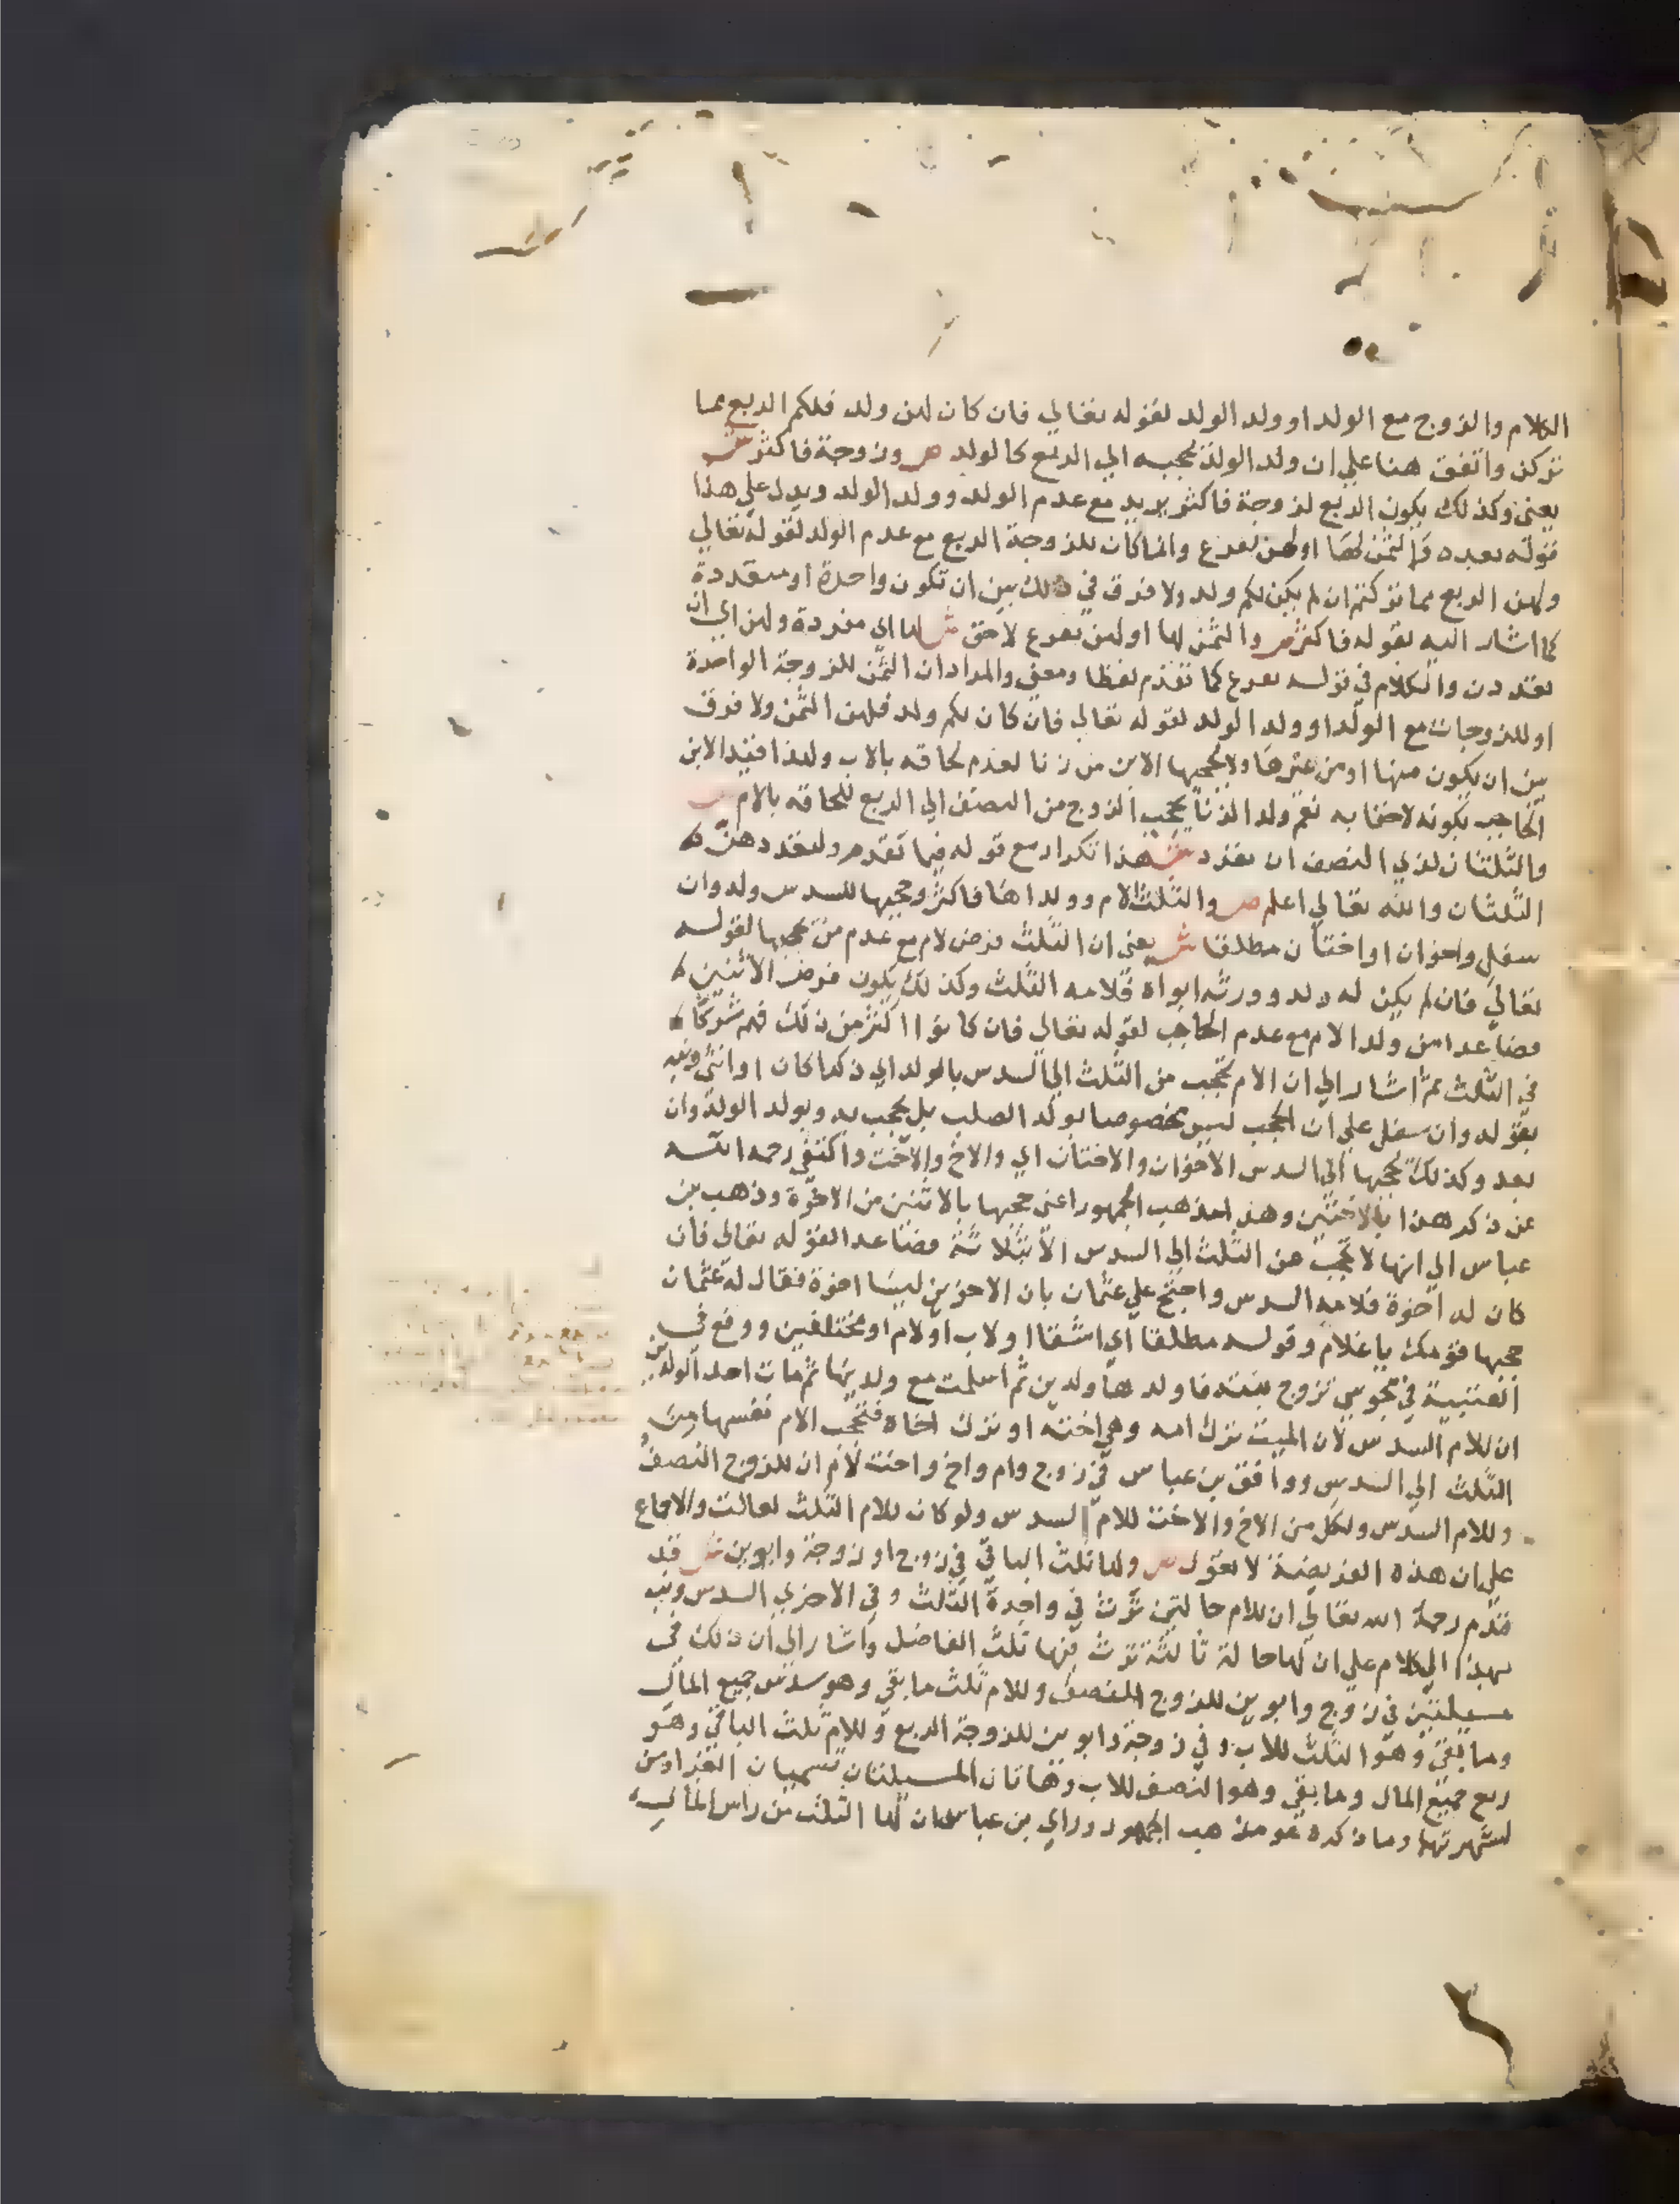 الكلام والزوج مع الولد او ولد الولد لقوله تعالي فان كان لهن ولد فلكم الربع مما
تركن واتفق هنا علي ان ولد الولد يحجبه الي الربع كالولد ص وزوجة فاكثر ش
يعني وكذلك يكون الربع لزوجة فاكثر يريد مع عدم الولد وولد الولد ويدل علي هذا
قوله بعده والثمن لها او لهن بفرع وانما كان للزوجة الربع مع عدم الولد لقوله تعالي
ولهن الربع مما تركتم ان لم يكن لكم ولد ولا فرق في ذلك بين ان تكون واحدة او متعددة
كما اشار اليه بقوله فاكثر ص والثمن لها او لهن بفرع لاحق ش لها اي منفردة ولهن اي ان
تعددن والكلام في قوله بفرع كما تقدم لفظا ومعني والمراد ان الثمن للزوجة الواحدة
او للزوجات مع الولد او ولد الولد لقوله تعالي فان كان لكم ولد فلهن الثمن ولا فرق
بين ان يكون منها او من غيرها ولا يحجبها الابن من زنا لعدم لحاقه بالاب ولهذا قيد الابن
الحاجب بكونه لاحقا به نعم ولد الزنا يحجب الزوج من النصف الي الربع للحاقه بالام ص
والثلثان لذي النصف ان تعدد ش هذا تكرار مع قوله فيما تقدم ولتعددهن
الثلثان والله تعالي اعلم ص والثلث لام وولداها فاكثر وحجبها للسدس ولد وان
سفل واخوان او اختان مطلقا ش يعني ان الثلث فرض لام مع عدم من يحجبها لقوله
تعالي فان لم يكن له ولد وورثه ابواه فلامه الثلث وكذلك يكون فرض الاثنين
فصاعدا من ولد الام مع عدم الحاجب لقوله تعالي فان كانوا اكثر من ذلك فهم شركا
في الثلث ثم اشار الي ان الام تحجب من الثلث الي السدس بالولد اي ذكرا كان او انثي ونبه
بقوله وان سفل علي ان الحجب ليس مخصوصا بولد الصلب بل يحجب به وبولد الولد وان
بعد وكذلك يحجبها الي السدس الاخوان والاختان اي والاخ والاخت واكتفي رحمه الله
عن ذكر هذا بالاختين وهذا مذهب الجمهور اعني حجبها بالاثنين من الاخوة وذهب بن
عباس الي انها لا تحجب من الثلث الي السدس الا بثلاثة فصاعدا لقوله تعالي فان
كان له اخوة فلامه السدس واحتج علي عثمان بان الاخوين ليسا اخوة فقال له عثمان
حجبها قومك يا غلام وقوله مطلقا اي اشقا او لاب او لام او مختلفين ووقع في
العتبية في مجوسي تزوج بنته فاولدها ولدين ثم اسلمت مع ولديها ثم مات احد الولدين
ان للام السدس لان الميت ترك امه وهي اخته او ترك اخاه فتحجب الام نفسها من
الثلث الي السدس ووافق بن عباس في زوج وام واخ واخت لام ان للزوج النصف
وللام السدس ولكل من الاخ والاخت للام السدس ولو كان للام الثلث لعالت والاجماع
علي ان هذه الفريضة لا تعول ص ولها ثلث الباقي في زوج او زوجة وابوين ش قد
قدم رحمة الله تعالي ان للام حالتين ترث في واحدة الثلث وفي الاخري السدس ونبه
بهذا الكلام علي ان لها حالة ثالثة ترث فيها ثلث الفاضل واشار الي ان ذلك في
مسيلتين في زوج وابوين للزوج النصف وللام ثلث ما بقي وهو سدس جميع المال
وما بقي وهو الثلث للاب وفي زوجة وابوين للزوجة الربع وللام ثلث الباقي وهو
ربع جميع المال وما بقي وهو النصف للاب وهاتان المسيلتان تسميان الغراوين
لشهرتها وما ذكره هو مذهب الجمهور وراي بن عباس ان لها الثلث من راس المال